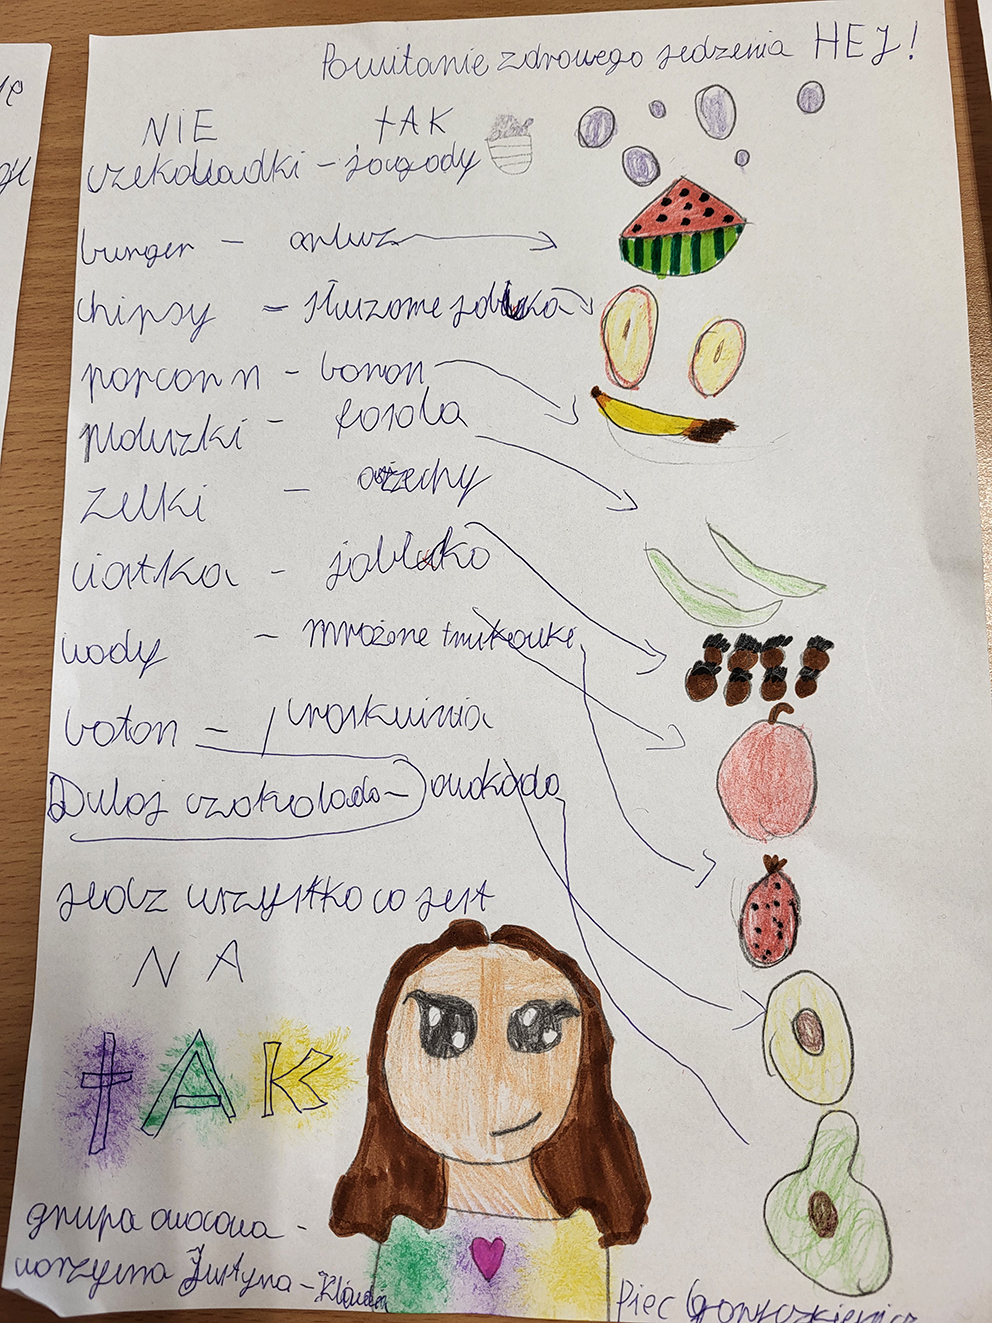 Powitanie zdrowego jedzenia HEJ!
NIE tAK
czekoladki - jagody
burger - arbuz
chipsy - słuzome jabłka
popcorn - banan
pioluzki - fasola
żelki - orzechy
ciastka - jabłko
wody - mrożone truskawki
baton - brzoskwinia
Dubaj czekolada - awokado
jedz wszystko co jest
NA
tAK
grupa owocowa -
warzywna Justyna - Klaudia
Piec